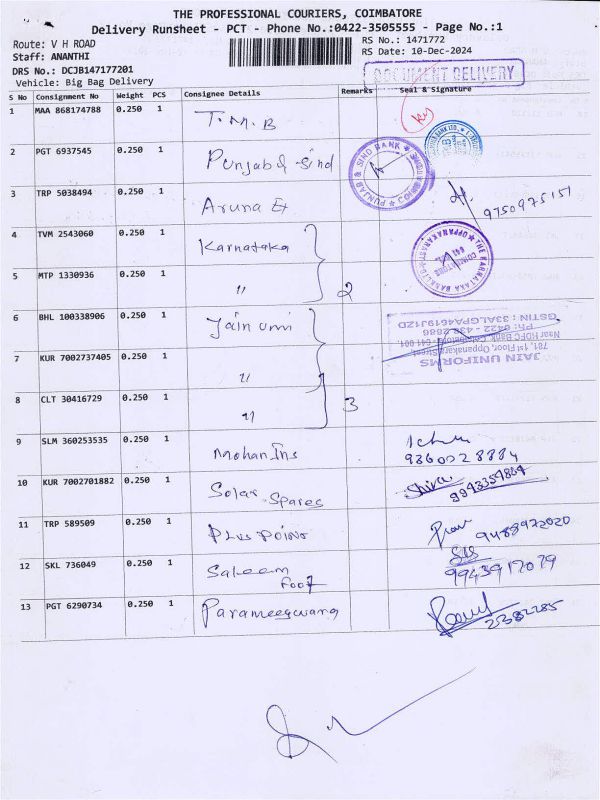 THE PROFESSIONAL COURIERS, COIMBATORE
Delivery Runsheet - PCT - Phone No.:0422-3505555 - Page No.:1
Route: V H ROAD
Staff: ANANTHI
DRS No.: DCJB147177201
Vehicle: Big Bag Delivery
RS No.: 1471772
RS Date: 10-Dec-2024
DOCUMENT DELIVERY
S No Consignment No Weight PCS Consignee Details Remarks Seal & Signature
1 MAA 868174788 0.250 1 T.M.B
2 PGT 6937545 0.250 1 Punjab & Sind
PUNJAB & SIND BANK
3 TRP 5038494 0.250 1 Aruna 9750975151
4 TVM 2543060 0.250 1 Karnataka
THE KARNATAKA BANK LTD
5 MTP 1330936 0.250 1 " 2
6 BHL 100338906 0.250 1 Jain uni
JAIN UNIFORMS
781, 1st Floor, Oppanakara Street,
Near HDFC Bank, Coimbatore - 641 001.
PH: 0422 - 438 2886
GSTIN : 33ALGPA4619J1ZD
7 KUR 7002737405 0.250 1 "
8 CLT 30416729 0.250 1 " 3
9 SLM 360253535 0.250 1 Mohan Ins
10 KUR 7002701882 0.250 1 Solar Spares Shiva
11 TRP 589509 0.250 1 Plus Point
12 SKL 736049 0.250 1 Saleem Foot
13 PGT 6290734 0.250 1